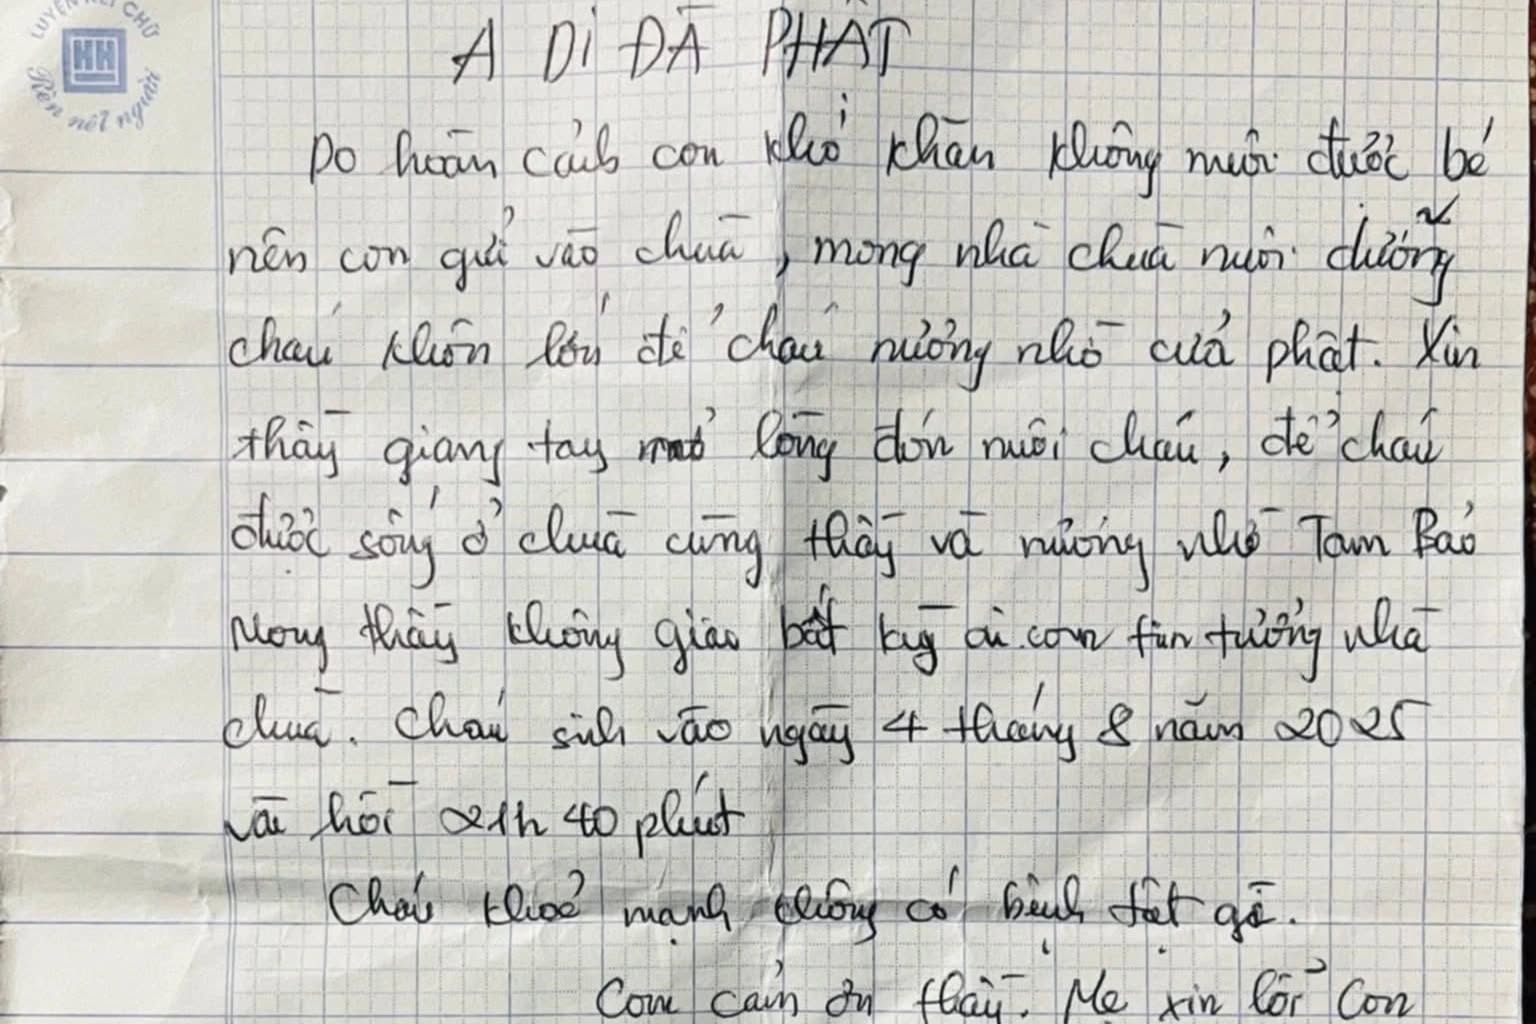 LUYỆN NÉT CHỮ
HH
Rèn nết người
A DI ĐÀ PHẬT
Do hoàn cảnh con khó khăn không nuôi được bé
nên con gửi vào chùa, mong nhà chùa nuôi dưỡng
cháu khôn lớn để cháu nương nhờ cửa phật. Xin
thầy giang tay mở lòng đón nuôi cháu, để cháu
được sống ở chùa cùng thầy và nương nhờ Tam Bảo
Mong thầy không giao bất kỳ ai. con tin tưởng nhà
chùa. Cháu sinh vào ngày 4 tháng 8 năm 2025
vào hồi 21h 40 phút
Cháu khoẻ mạnh không có bệnh tật gì.
Con cảm ơn thầy. Mẹ xin lỗi con